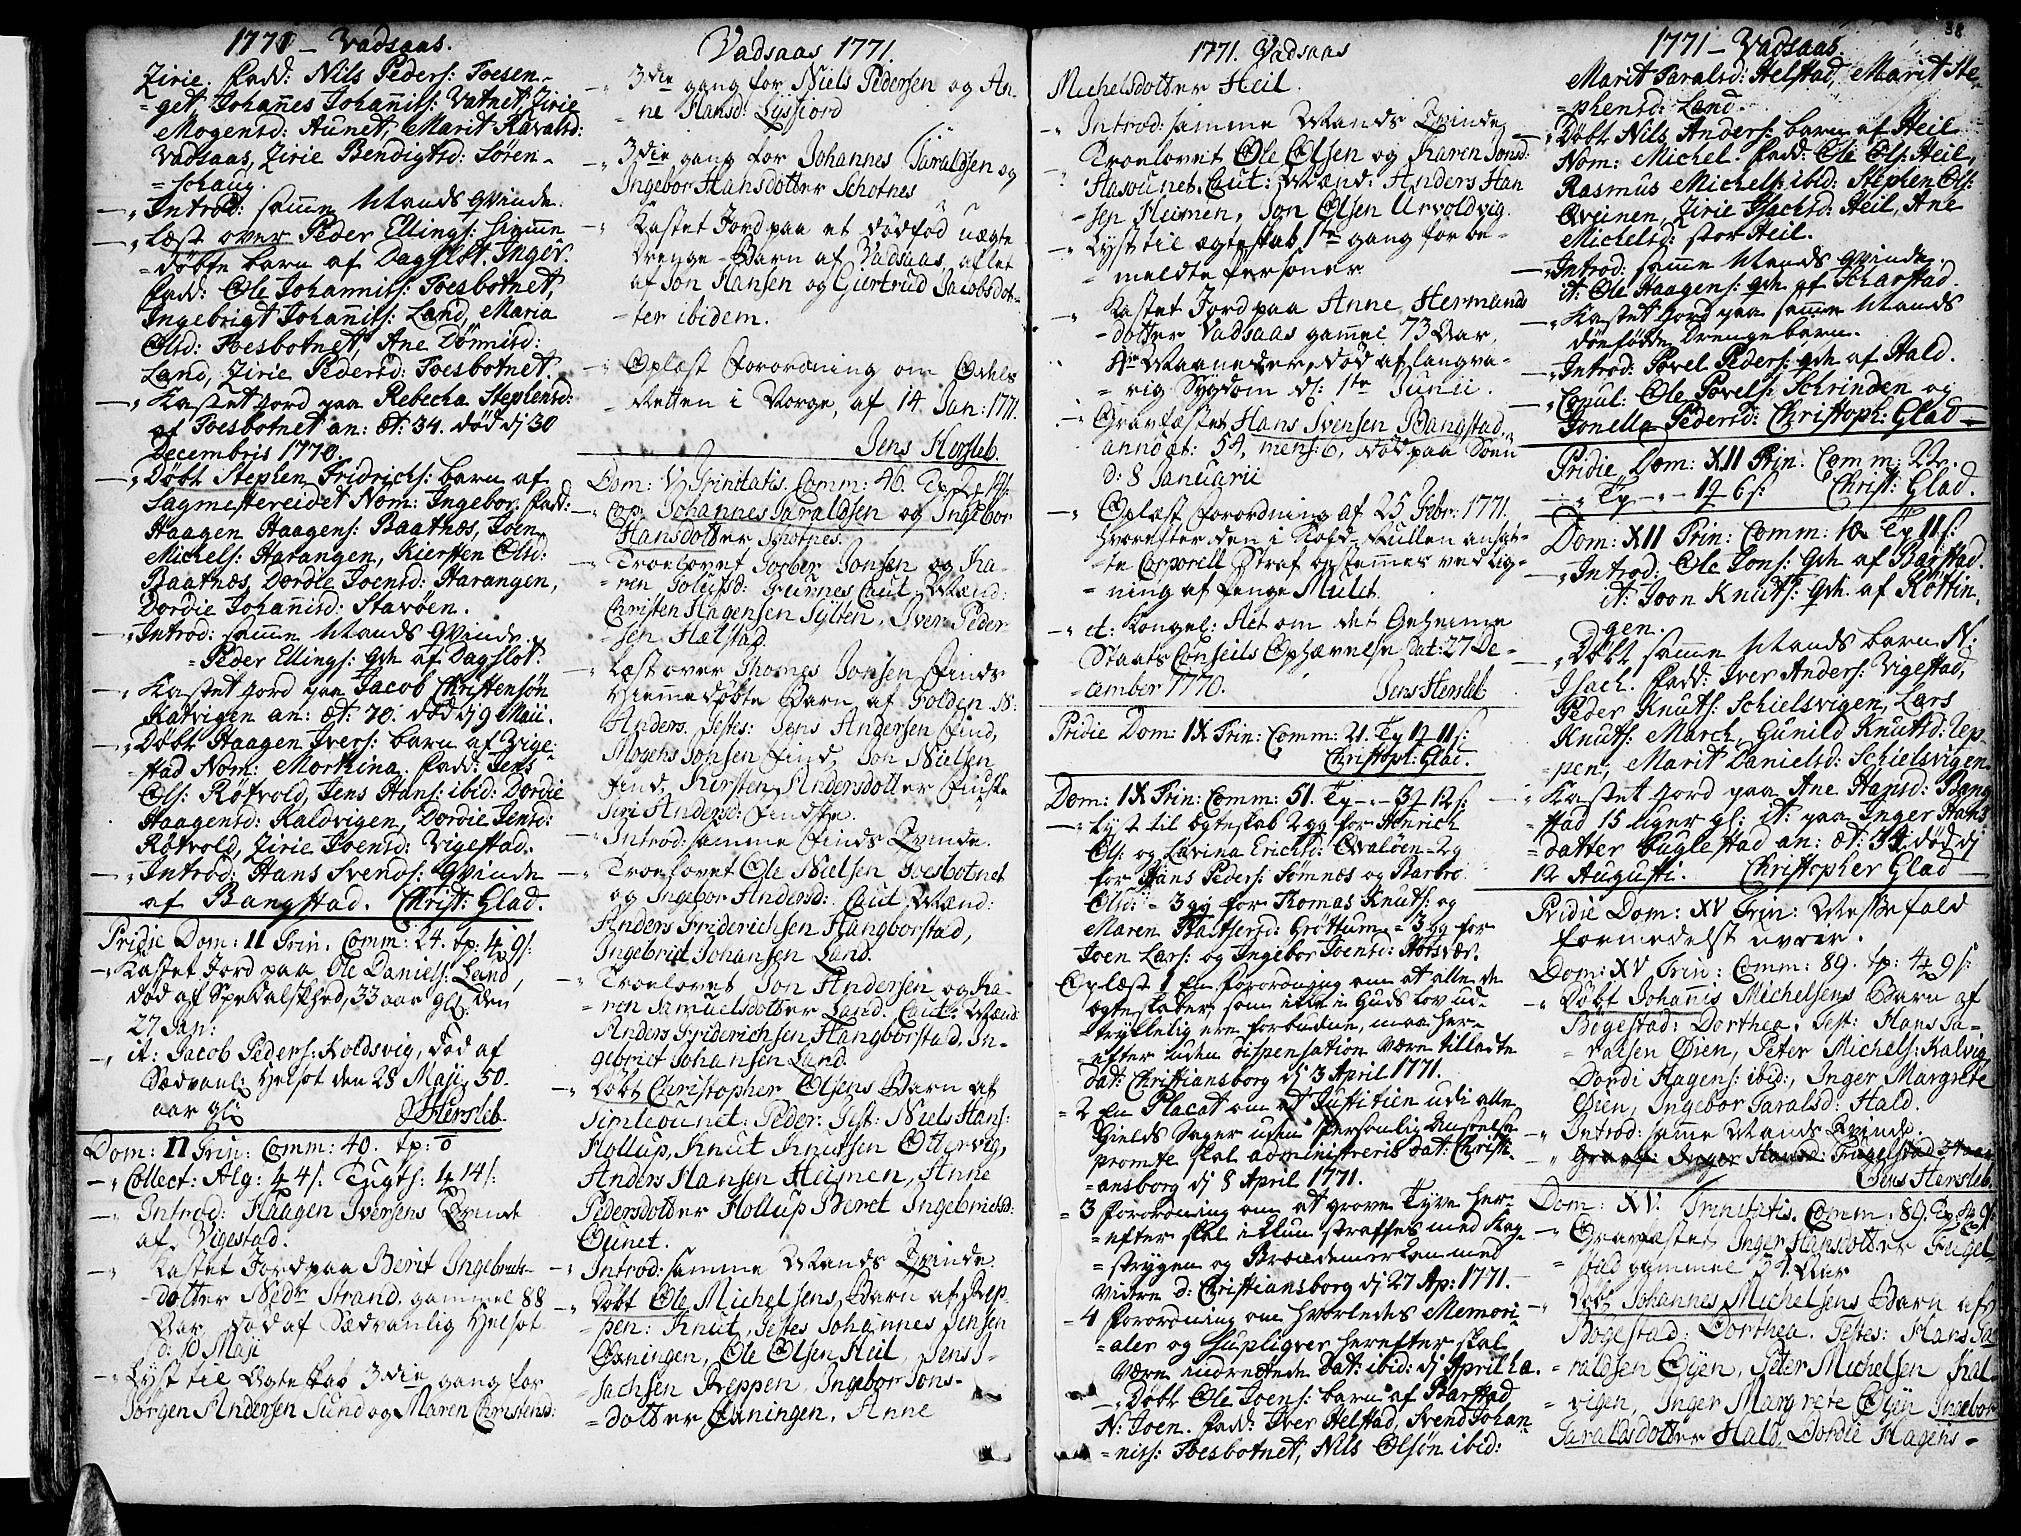 1771 - Vadsaas.
Zirie. Fadd: Nils Peders: Foesen-
=get, Johannes Johannits: Vatnet, Zirie
Mogensd: Aunet, Marit Ravalsd:
Vadsaas, Zirie Bendigtsd: Sören-
=schaug.
Introd: samme Mands Qvinde.
Læst over Peder Ellings: hiemme
=døbte barn af Dagslot. Inger.
Fadd: Ole Johannits: Foesbotnet,
Ingebrigt Johannits: Land, Maria
Olsd: Foesbotnet, Ane Dönnisd:
Land, Zirie Pedersd: Foesbotnet.
Kastet Jord paa Rebecha Stephensd:
af Foesbotnet an: æt: 34. død dj 30
Decembris 1770.
Døbt Stephen Fridrichs: barn af
Sagmestereidet Nom: Ingebor. Fadd:
Haagen Haagens: Baatnæs, Joen
Michels: Harangen, Kiersten Olsd:
Baatnæs, Dordie Joensd: Harangen,
Dordie Johannisd: Stavöen.
Introd: samme Mands Qvinde.
=Peder Ellings: Qvh af Dagslot.
Kastet Jord paa Jacob Christensön
Kalvigen an: æt: 70. død dj 9 Maii.
Døbt Haagen Ivers: barn af Vige-
=stad Nom: Morthina. Fadd: Jens
Ols: Rötvold, Jens Hans: ibid: Dordie
Haagensd: Kaldvigen, Dordie Jensd:
Rötvold, Zirie Joensd: Vigestad.
Introd: Hans Svends: Qvinde
af Bangstad. Christ: Glad.
Pridie Dom: II Trin: Comm: 24. tp: 4 9/:
Kastet Jord paa Ole Daniels: Land,
død af Spedalskhed, 33 aar gl: den
27 Jan:
it: Jacob Peders: Koldsvig, død af
Sædvanl: Helsot den 28 Maji, 50.
aar gl:
J Hersleb.
Dom: II Trin: Comm: 40. tp: 0
Collect: Alg: 4 4/: Tugts: 4 14/:
Introd: Haagen Iversens Qvinde
af Vigestad.
Kastet Jord paa Berit Ingebricts-
dotter Nedr Strand, gammel 88
Aar død af Sædvanlig Helsot
d: 10 Maji
Lyst til Ægteskab 3die gang for
Jørgen Andersen Sund og Maren Christensd:

Vadsaas 1771.
3die gang for Niels Pedersen og An-
ne Hansd: Lyssfiord
3die gang for Johannes Taraldsen og
Ingebor Hansdotter Schotnes
Kastet Jord paa et dødfød uægte
Drenge-Barn af Vadsaas, aflet
af Jon Hansen og Giertrud Jacobsdot-
ter ibidem.
Oplæst Forordning om Odels
Retten i Norge, af 14 Jan: 1771.
Jens Hersleb.
Dom: V Trinitatis. Comm: 46.
Cop: Johannes Taraldsen og Ingebor
Hansdotter Schotnes.
Troelovet Torber Jonsen og Ka-
ren Caut: Mænd:
Christen Hagensen Sylten, Iver Peder
sen Hælstad.
Læst over Thomes Jonsen Finds
hiemmedøbte Barn af Folden N:
Anders. Testes: Jens Andersen Find,
Mogens Jonsen Find, Jon Nielsen
Find, Kirsten Andersdotter Finske
Siri Andersd: Findske.
Introd: samme Finds Qvinde.
Troelovet Ole Nielsen Foesbotnet
og Ingebor Andersd: Caut: Mænd:
Anders Friderichsen Hangborstad,
Ingebrict Johansen Land.
Troelovet Jon Andersen og Ka-
ren Samuelsdotter Land. Caut: Mænd:
Anders Friderichsen Hangborstad, In-
gebrict Johansen Land.
Døbt Christopher Olsens Barn af
Simleounet: Peder. Test: Niels Hans:
Hollup, Knut Knutsen Ottervig,
Anders Hansen Heimen, Anne
Pedersdotter Hollup Beret Ingebrictsd:
Ounet.
Introd: samme Mands Qvinde.
Døbt Ole Michelsens Barn af Rep-
pen: Knut, Testes Johannes Jensen
Oxningen, Ole Olsen Heil, Jens I-
sachsen Reppen, Ingebor Jons-
=dotter Oxningen, Anne

1771. Vadsaas
Michelsdotter Heil.
Introd: samme Mands Qvinde
Troelovet Ole Olsen og Karen Jonsd:
Hasounet. Caut: Mænd: Anders Han
sen Heimen, Jon Olsen Urvoldvig.
Lyst til ægteskab 1te gang for be-
meldte Personer
Kastet Jord paa Anne Hermands
dotter Vadsaas gammel 73 Aar,
4re Maaneder, død af langva-
rig Sygdom d: 1te Junii.
Gravfæstet Hans Svensen Bangstad,
anno æt: 54, mens: 6, død paa Søen
d: 8 Januarii
Oplæst Forordning af 25 Febr: 1771.
hvorefter den i Kold-Rullen ansat-
te Corporell Straf bestemmes ved Lig-
ning af Penge Mulct.
et: Kongel: Act om det Geheime
Staats Conseils Ophævelse Dat: 27 De-
cember 1770. Jens Hersleb
Pridie Dom: IX Trin: Comm: 21. Tp 11/:
Christoph: Glad.
Dom: IX Trin: Comm: 51. Tp - - 3 12/:
Lyst til ægteskab 2 gg for Henrich
Ols: og Lavina Erichsd: Qvalöen = 2g
for Hans Peders: Somnæs og Barbro
Olsd: = 3 gg for Thomas Knuts: og
Maren Baltsersd: Gröttum = 3 gg for
Joen Lars: og Ingebor Joensd: Aarsvær.
Oplæst 1 En Forordning om at alle de
ægteskaber, som ikke i Guds Lov ud-
=trykkelig ere forbudne, maa her-
=efter uden Dispensation være tilladte
Dat: Christiansborg dj 3 April 1771.
= 2 En Placat om at Justitien udi alle
Gields Sager uden Personlig Ansøelse
prompte skal administreris Dat: Christi-
=ansborg dj 8 April 1771.
= 3 Forordning om at groove Tyve her-
=efter skal ikkun straffes med Kag-
=strygen og Brændemerken med
videre d: Christiansborg dj 27 Ap: 1771.
= 4 Forordning om hvorledes Memori-
=aler og Supliqver herefter skal
være indrettede Dat: ibid: dj April ha.
Døbt Ole Joens: barn af Barstad
N: Joen. Fadd: Iver Helstad, Svend Johan
=nits: Foesbotnet, Nils Olsön ibid:

38
1771 - Vadsaas.
Marit Taralsd: Helstad, Marit Ste-
=phensd: Land.
Døbt Nils Anders: barn af Heil
Nom: Michel. Fadd: Ole Ols: Heil,
Rasmus Michels: ibid: Stephen Ols:
Qveinen, Zirie Isachsd: Heil, Ane
Michelsd: stor Heil.
Introd: samme Mands Qvinde.
it: Ole Haagens: Qvh af Scharstad.
Kastet Jord paa samme Mands
dödfödde Drengebarn.
Introd: Povel Peders: Qvh af Hald.
Copul: Ole Povels: Schrinden og
Jonella Pedersd: Christoph: Glad
Pridie Dom: XII Trin: Comm: 22.
Tp - - - 6/: Christ: Glad.
Dom: XII Trin: Comm: 10. Tp 11/:
Introd: Ole Jons: Qvh: af Barstad.
it: Joon Knuts: Qvh. af Röttin.
gen.
Døbt samme Mands barn N:
Isach. Fadd: Iver Anders: Vigestad,
Peder Knuts: Schielsvigen, Lars
Knuts: March, Gunild Knutsd: Rep-
=pen, Marit Danielsd: Schielsvigen.
Kastet Jord paa Ane Hansd: Bang
=stad 15 uger gl: it: paa Inger Hans
=datter Fuglestad an: æt: 34. død dj
12 Augusti. Christopher Glad
Pridie Dom: XV Trin: Messefald
formedelst uveir.
Dom: XV Trin: Comm: 89. tp: 4 9/:
Døbt Johannis Michelsens Barn af
Bøgestad: Dorthea. Test: Hans Ta-
ralsen Øien, Peter Michels: Kalvig,
Dordi Hagens: ibid:, Inger Margrete
Øien, Ingebor Taralsd: Hald.
Introd: samme Mands Qvinde.
Gravf: Inger Hansd: Fugelstad 34 aar
Jens Hersleb.
Dom: XV. Trinitatis. Comm: 89.
Gravfæstet Inger Hansdotter Fugel-
stad gammel 34 Aar
Døbt Johannes Michelsens Barn af
Bøgestad: Dorthea. Testes: Hans Ta
raldsen Øyen, Peter Michelsen Kal-
vigen, Inger Margrete Øyen Ingebor
Taraldsdotter Hald, Dordie Hagens-